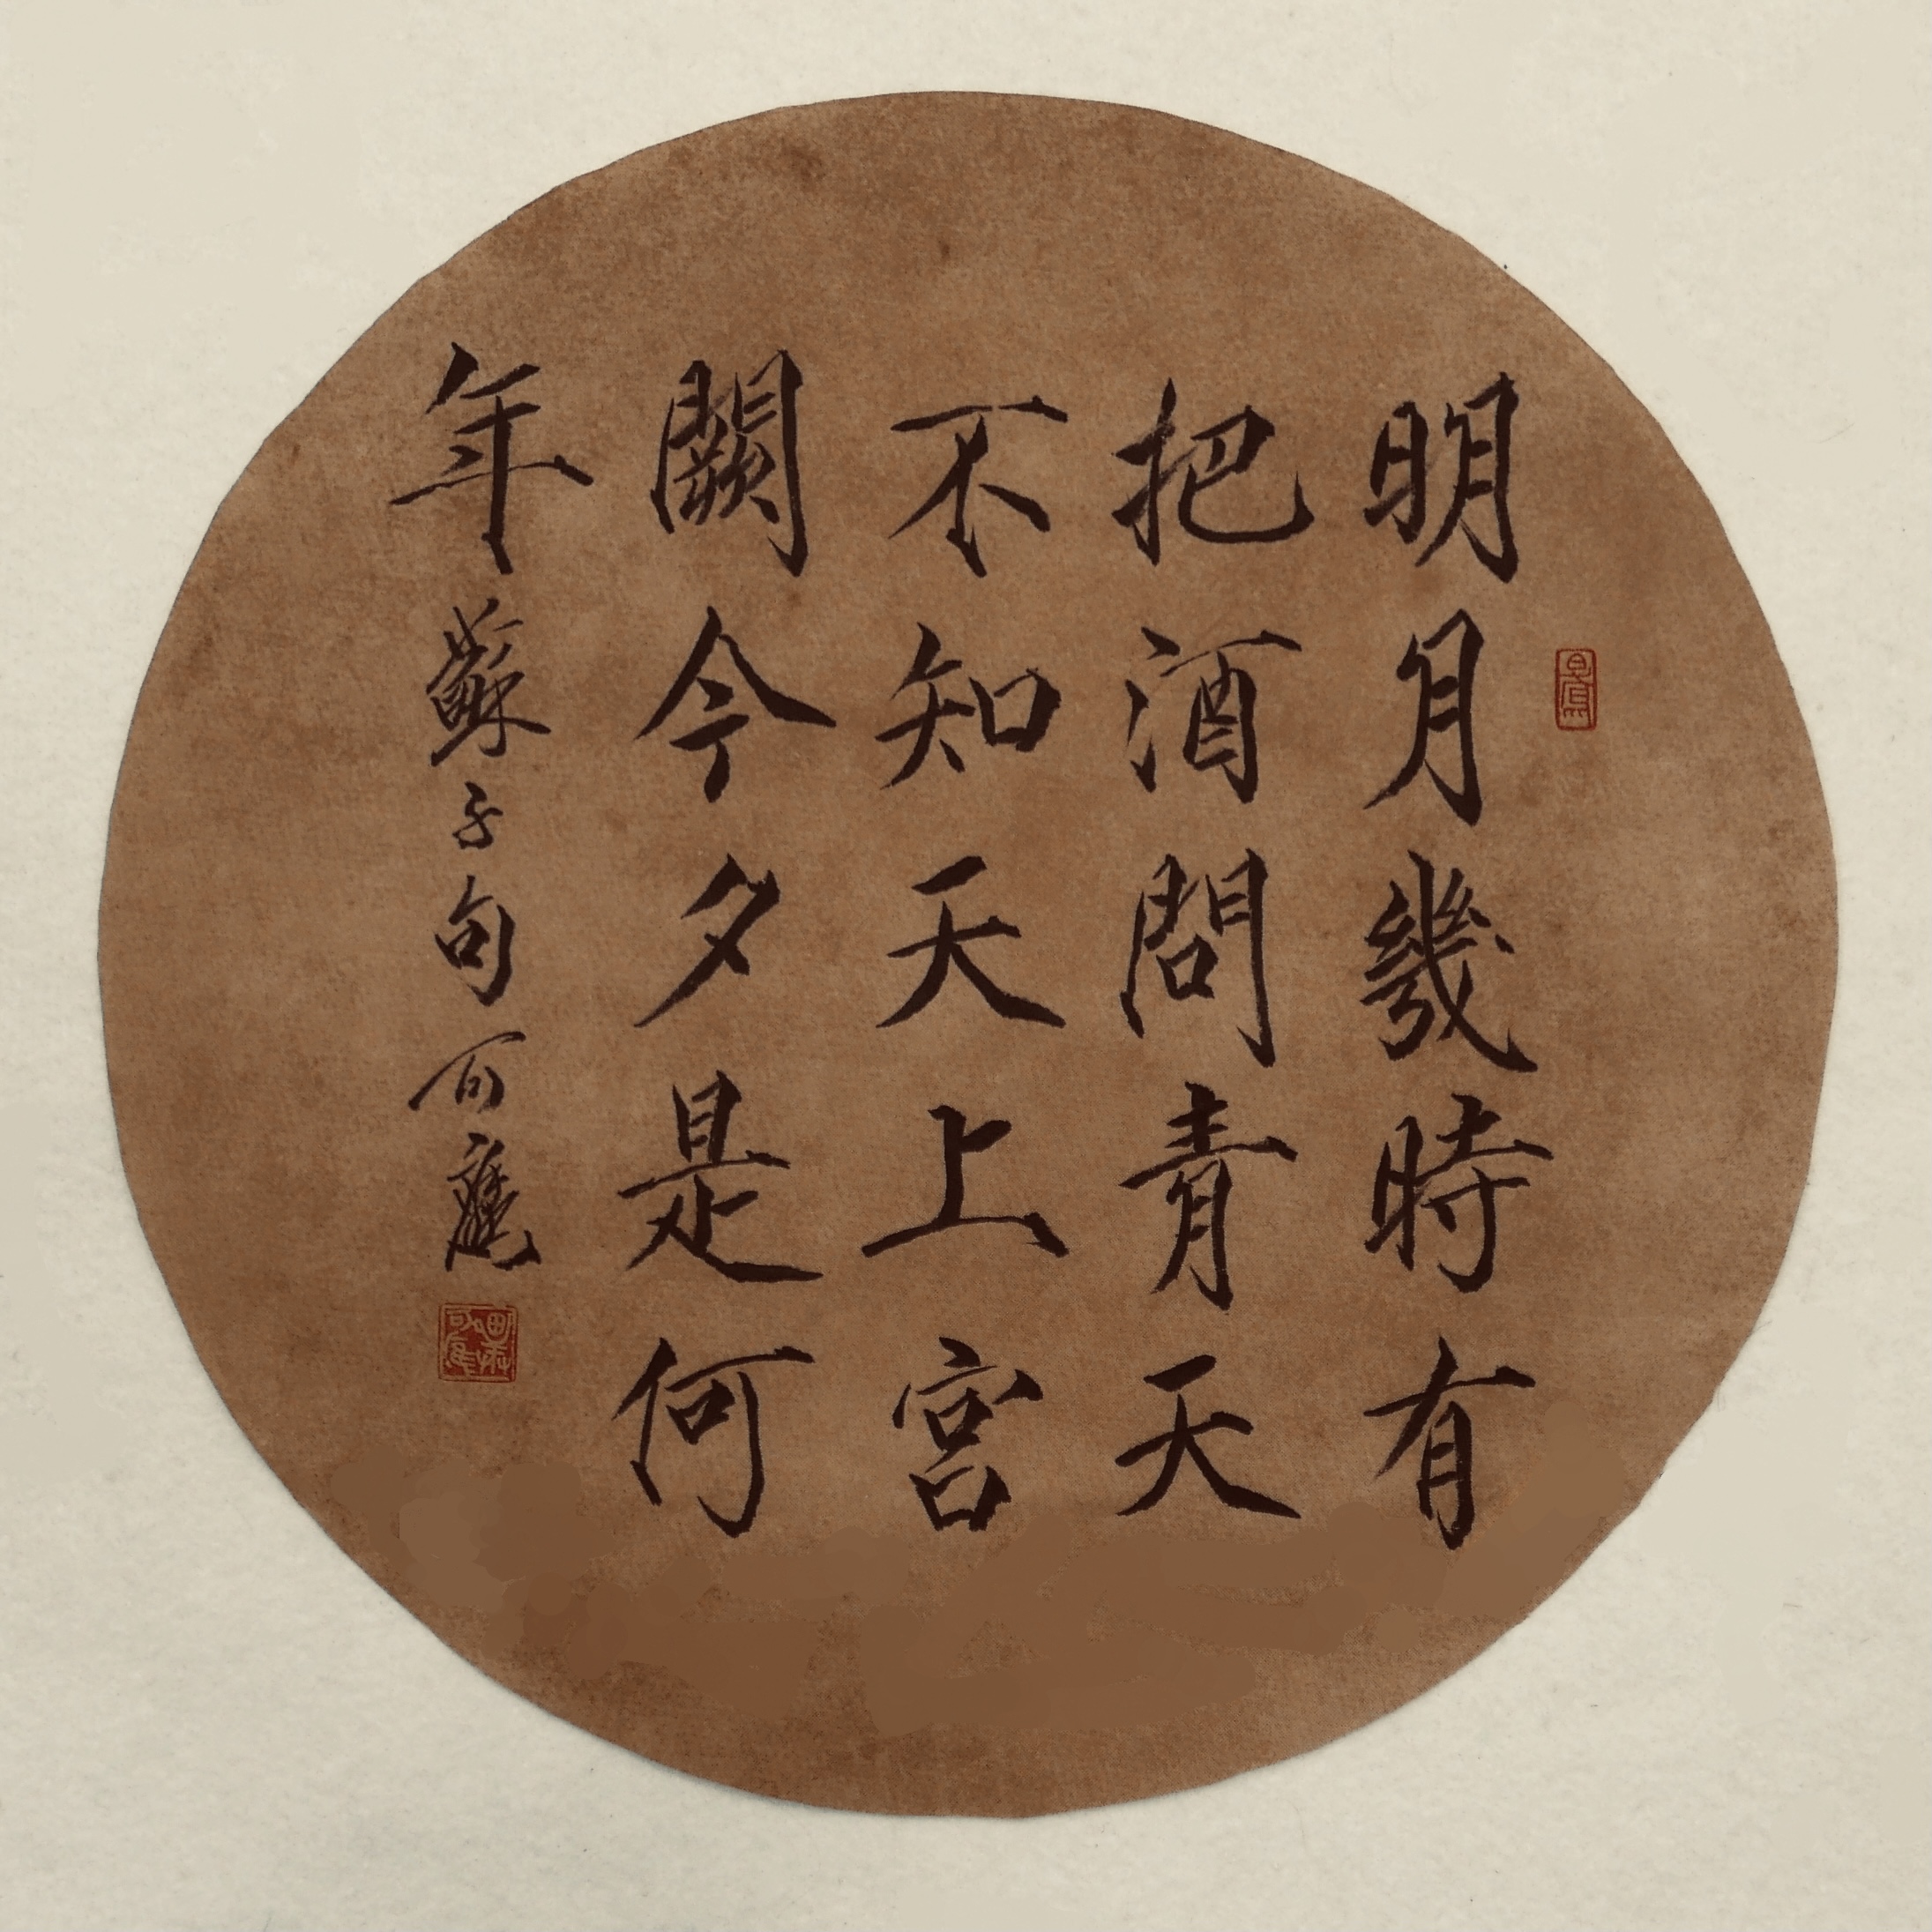 明月幾時有
把酒問青天
不知天上宮
闕今夕是何
年蘇子句可